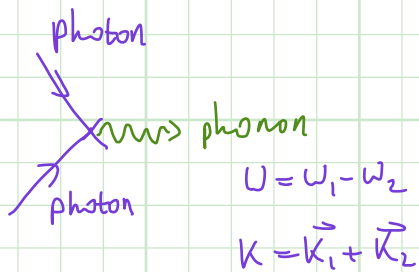 photon
phonon
photon
U = ω₁ - ω₂
K = K⃗₁ + K⃗₂